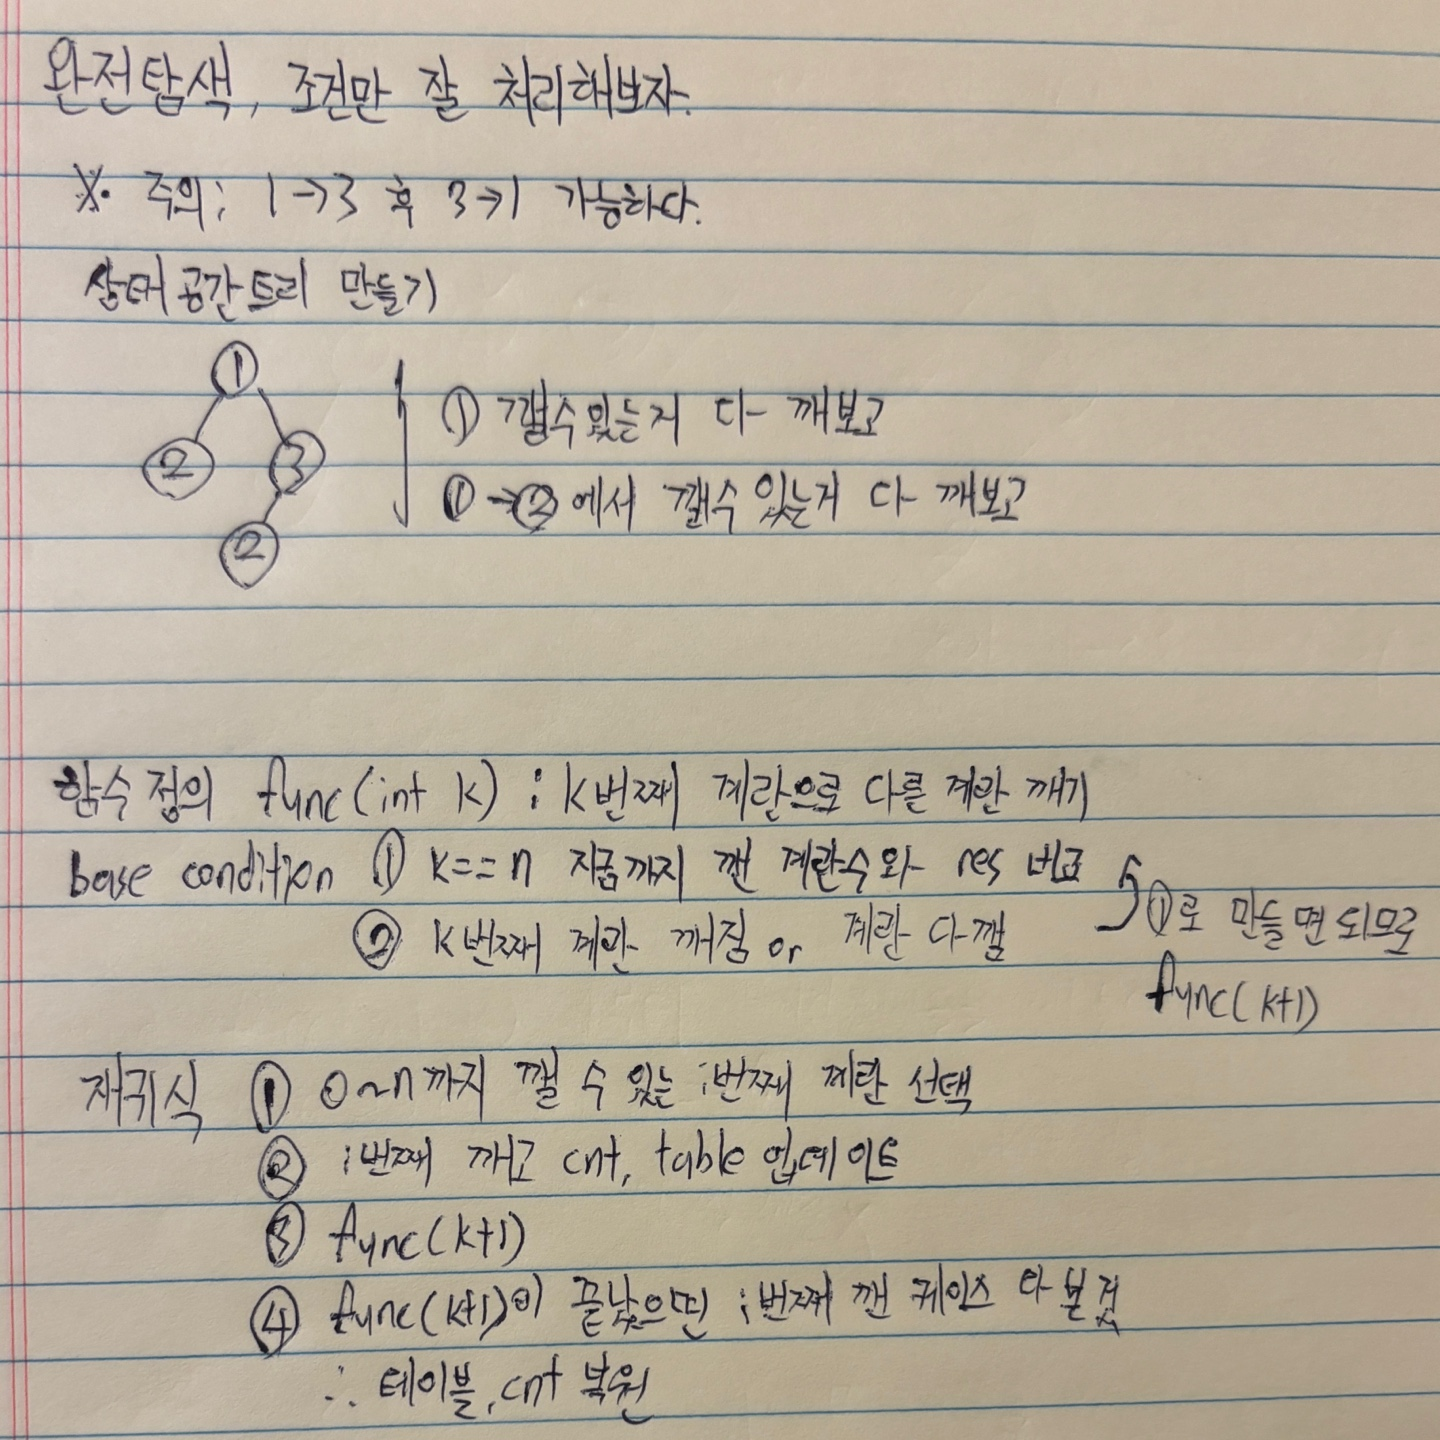 완전탐색, 조건만 잘 처리해보자.
※ 주의: 1→3 후 3→1 가능하다.
상태공간트리 만들기
①
② ③
②
① 깰수있는거 다 깨보고
①→② 에서 깰수있는거 다 깨보고
함수정의 func(int k) : k번째 계란으로 다른 계란 깨기
base condition ① k==n 지금까지 깬 계란수와 res 비교
② k번째 계란 깨짐 or 계란 다깸
①로 만들면 되므로
func(k+1)
재귀식 ① 0~n까지 깰 수 있는 i번째 계란 선택
② i번째 깨고 cnt, table 업데이트
③ func(k+1)
④ func(k+1)이 끝났으면 i번째 깬 케이스 다 본 것
∴ 테이블, cnt 복원